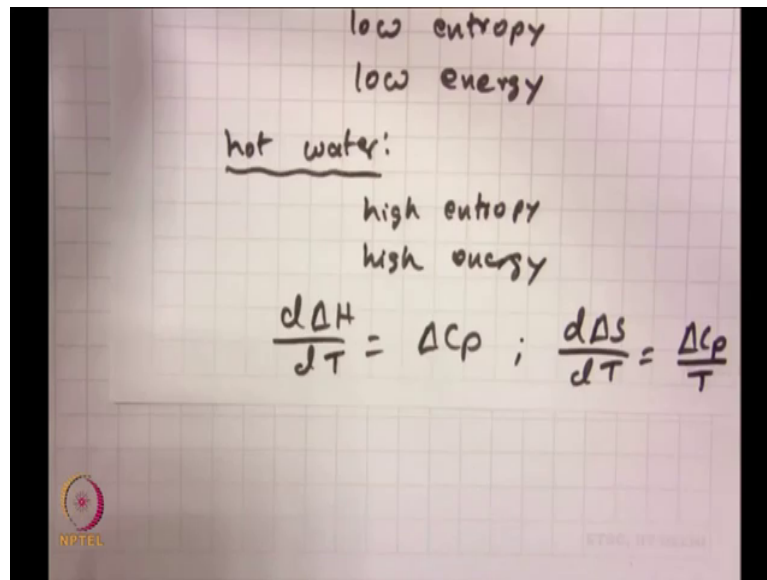 low entropy
low energy
hot water:
high entropy
high energy
dΔH/dT = ΔCp ; dΔS/dT = ΔCp/T
NPTEL
ETSC, IIT DELHI